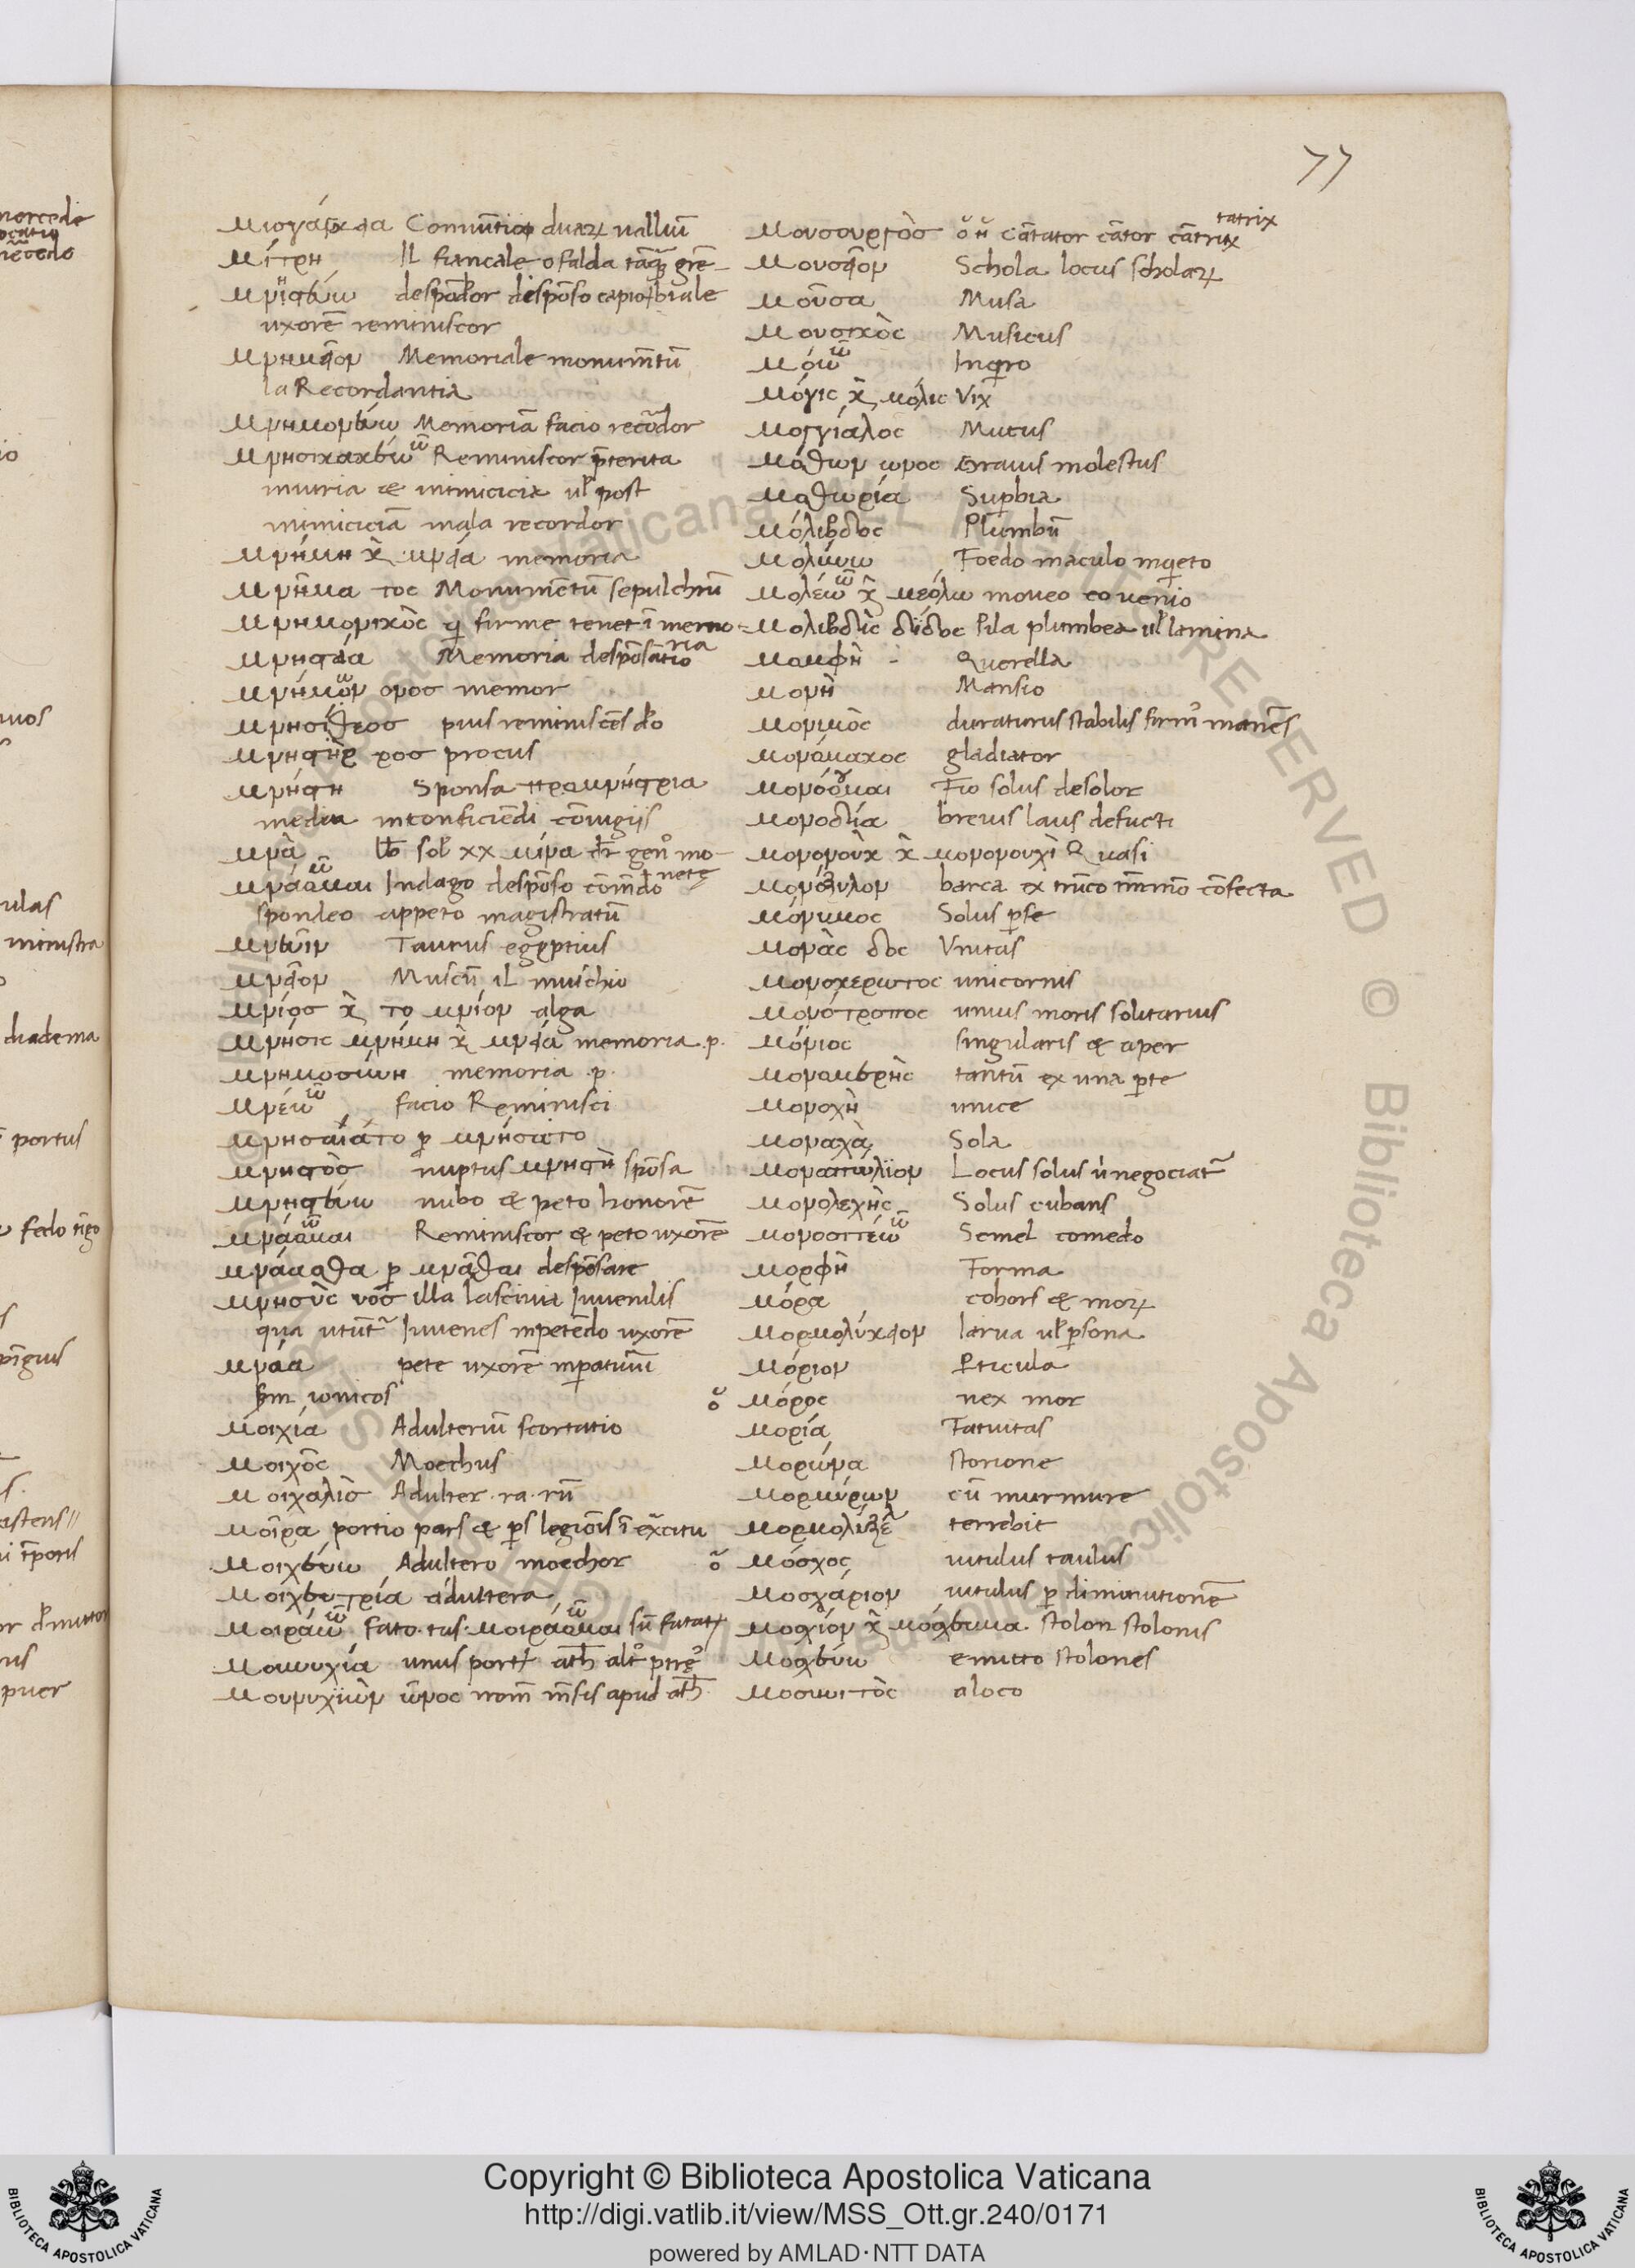 77
μισγάγκεια Conuētio duaꝝ ualliū
Μίτρη Il fiancale o falda tāqȝ grē-
μνηστεύω despōdeor despōso capio /biale
uxorē reminiscor
Μνημεῖον Memoriale monumētū
la Recordantia
Μνημονεύω Memoriā facio recordor
Μνησικακέω ῶ Reminiscor p̄terita
iniuria et inimicicia uł post
inimiciciā mala recordor
Μνήμη κ̀ μνεία memoria
Μνῆμα τος Monumētū sepulchrū
Μνημονικὸς q firme tenet ī memo-
ria
Μνηστεία Memoria despōsatio
Μνήμων ονοσ memor
Μνησίθεοσ pius reminiscēs deo
Μνηστὴρ ροσ procus
Μνήστη Sponsa προμνήστρια
media in conficiēdi cōiugiis
Μνᾶ sol xx μίνα genꝰ mo-
nete
Μνάομαι ῶμαι Indago despōso
spondeo appeto magistratū
Μνεῦιν Taurus egyptius
Μνεῖον Muscū il muschio
Μνίοσ κ̀ το μνίον alga
Μνῆσις μνήμη κ̀ μνεία memoria .p.
Μνημοσύνη memoria .p.
Μνέω ῶ facio Reminisci
Μνησαίατο p μνήσαιτο
Μνηστὸσ nuptus μνηστὴ spōsa
Μνηστεύω nubo et peto honorē
Μνάομαι ῶμαι Reminiscor et peto uxorē
Μνάασθαι p μνᾶσθαι despōsare
Μνηστὺς ύοσ illa lasciuia Iuuenilis
qua utūt᷑ Iuuenes in petēdo uxorē
Μνάα pete uxorē
ẜm ionicos
Μοιχία Adulteriū scortatio
Μοιχὸς Moechus
Μοιχαλὶσ Adulter. ra. rū
Μοῖρα portio pars et ps legiōis ī exercitu
Μοιχεύω Adultero moechor
Μοιχευτρία adultera
Μοιράω ῶ fato. tas. Μοιράομαι ῶμαι sū fatat
Μουνυχία unus
Μουνυχιὼν ῶνος nom mēsis apud ath
Μουσουργὸσ ὁ ἡ cātator cātor cātrix
tatrix
Μουσεῖον Schola locus scholaꝝ
Μοῦσα Musa
Μουσικὸς Musicus
Μόω ῶ Inqro
Μόγις κ̀ μόλις Vix
Μογγιάλος Mutus
Μόθων ωνος Grauis molestus
Μοθωνία Supbia
Μόλιβδος Plumbū
Μολύνω Foedo maculo inqeto
Μολέω ῶ κ̀ μεόλω moueo eo uenio
Μολιβδὶς δίδος Pila plumbea uł lamina
Μομφὴ Querella
Μονὴ Mansio
Μονιμὸς duraturus stabilis firmꝰ manēs
Μονόμαχος gladiator
Μονόομαι οῦμαι Fio solus desolor
Μονοδία breuis laus defucti
Μονονοὺκ κ̀ μονονουχὶ Quasi
Μονόξυλον barca ex trūco cōfecta
Μόνιμος Solus p se
Μονὰς δος Vnitas
Μονοκερωτος unicornis
Μονότροπος unius moris solitarius
Μόνιος singularis et aper
Μονομερὴς tantū ex una pte
Μονοχὴ unice
Μοναχὰ Sola
Μονοπώλιον Locus solus ū negociat᷑
Μονολεχὴς Solus cubans
Μονοσιτέω ῶ Semel comedo
Μορφὴ Forma
Μόρα cohors et moꝝ
Μορμολύκειον larua uł psona
Μόριον Pticula
ὁ Μόρος nex mor
Μορία Fatuitas
Μορύνα storione
Μορμύρων cū murmure
Μορμολύξει terrebit
ὁ Μόσχος uitulus taulus
Μοσχάριον uitulus p diminutionē
Μοσχίον κ̀ μόσχευμα stolon stolonis
Μοσχεύω emitto stolones
Μοσωιτὸς aloco
Copyright © Biblioteca Apostolica Vaticana
http://digi.vatlib.it/view/MSS_Ott.gr.240/0171
powered by AMLAD·NTT DATA